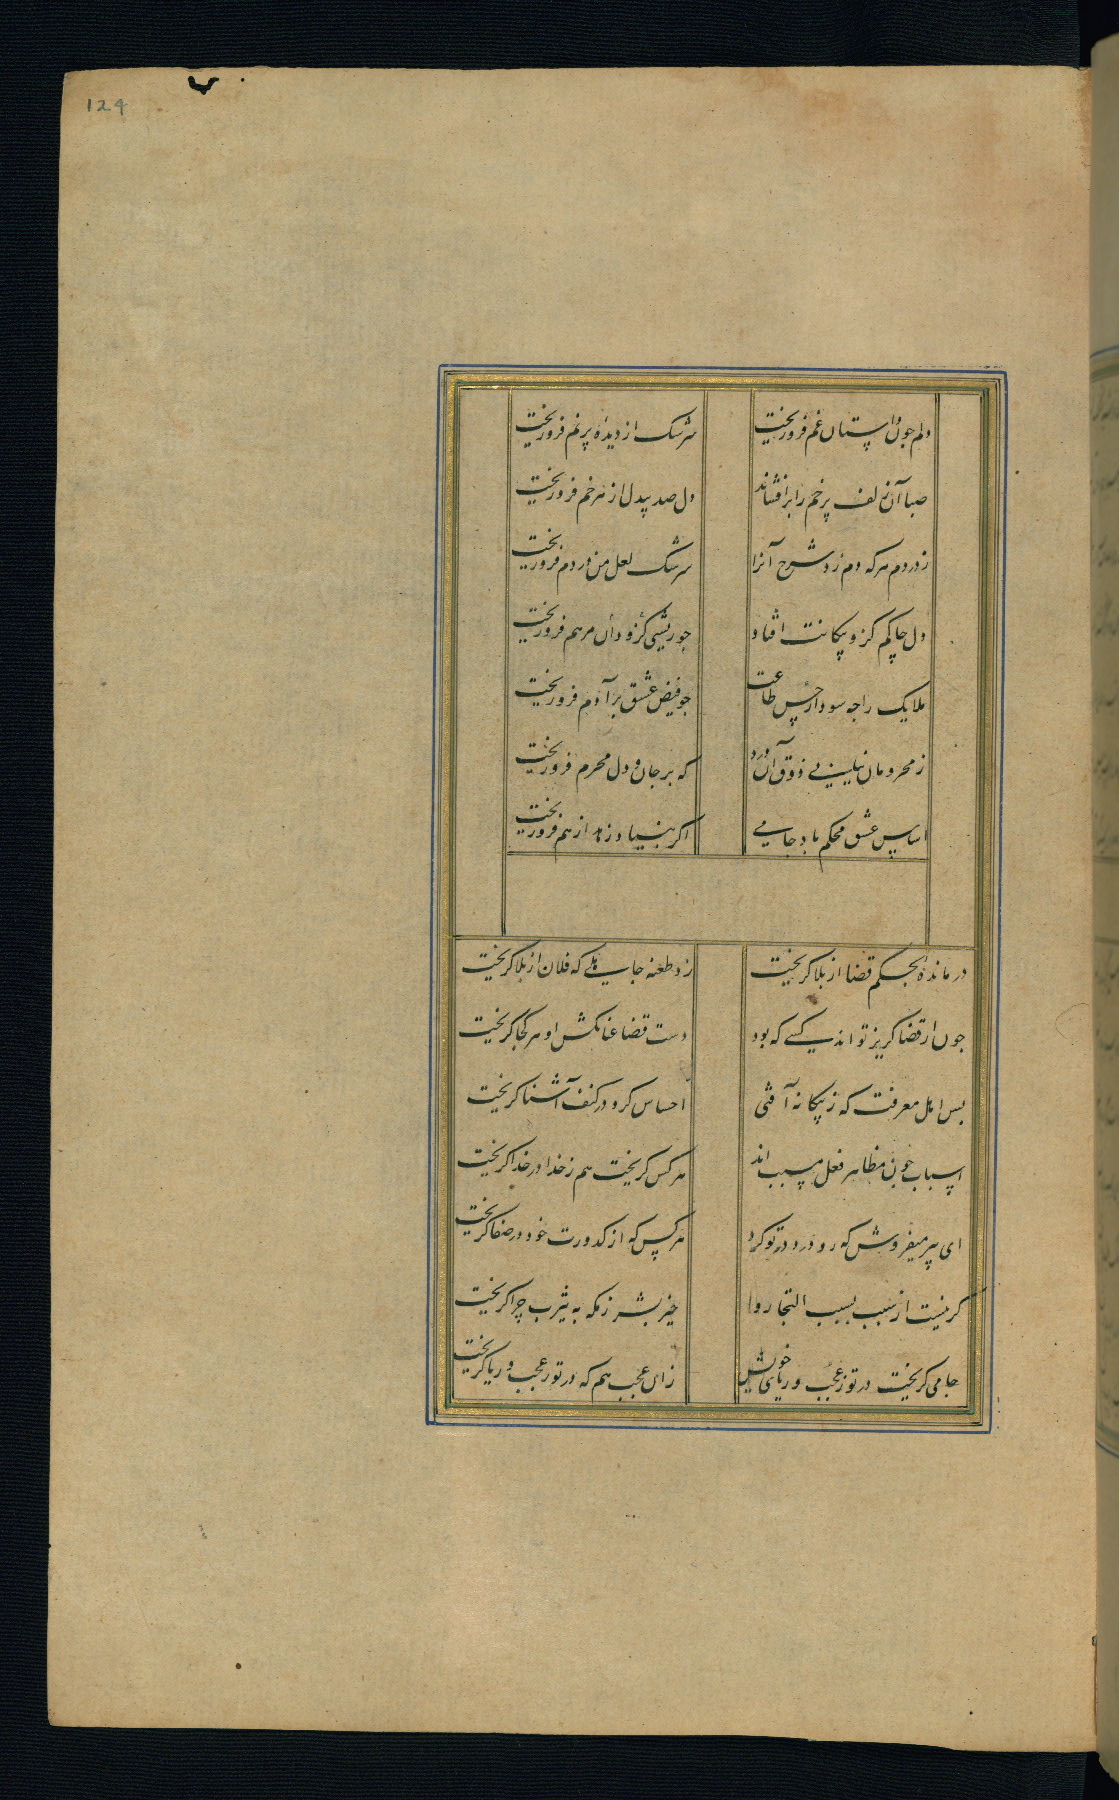 124
دلم جون داستان غم فروریخت سرشک از دیده پرنم فروریخت
صبا آن زلف پرخم را برافشاند دل صد بیدل از هر خم فروریخت
ز دردم هر که دم زد شرح آنرا سرشک لعل من در دم فروریخت
دل جاکم کزو پیکانت افتاد جو ریشی کزو دان مرهم فروریخت
ملایک را جه سود از حسن طاعت جو فیض عشق بر آدم فروریخت
ز محرومان نیابی ذوق آن درد که بر جان و دل محرم فروریخت
اساس عشق محکم باد جامی اکر بنیاد زهد از هم فروریخت
در مانده بحکم قضا از بلا کریخت زد طعنه جاهلی که فلان از بلا کریخت
جون از قضا کریز تواند کسی که بود دست قضا عنانکش او هر کجا کریخت
بس اهل معرفت که ز بیکانه آفتی احساس کرد و در کنف آشنا کریخت
اسباب جون مظاهر فعل مسبب اند هر کس کریخت هم ز خدا در خدا کریخت
ای پیر میفروش که رو در در تو کرد هر کس که از کدورت خود در صفا کریخت
کر نیست از سبب بسبب التجا روا خیر بشر ز مکه به یثرب چرا کریخت
جامی کریخت در تو ز عجب و ریای خویش زان عجب هم که در تو ز عجب و ریا کریخت